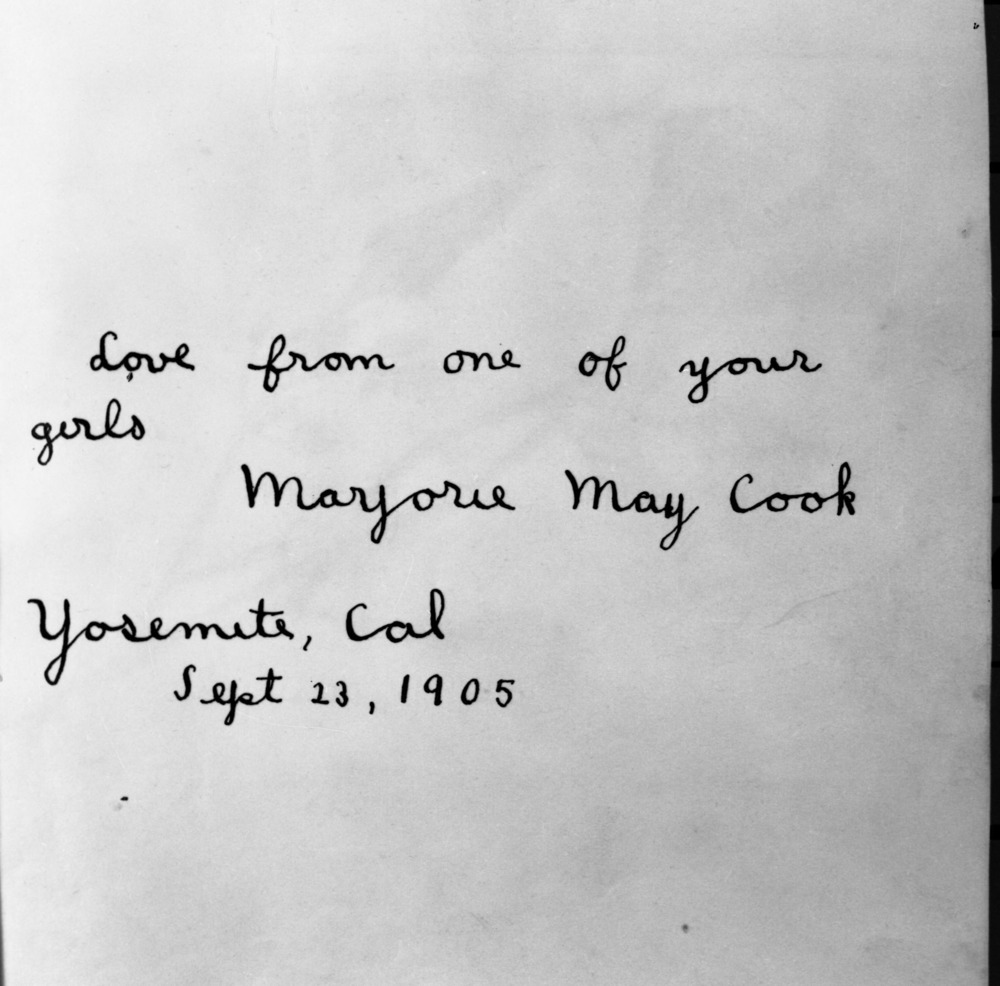 Love from one of your
girls
Marjorie May Cook
Yosemite, Cal
Sept 23, 1905